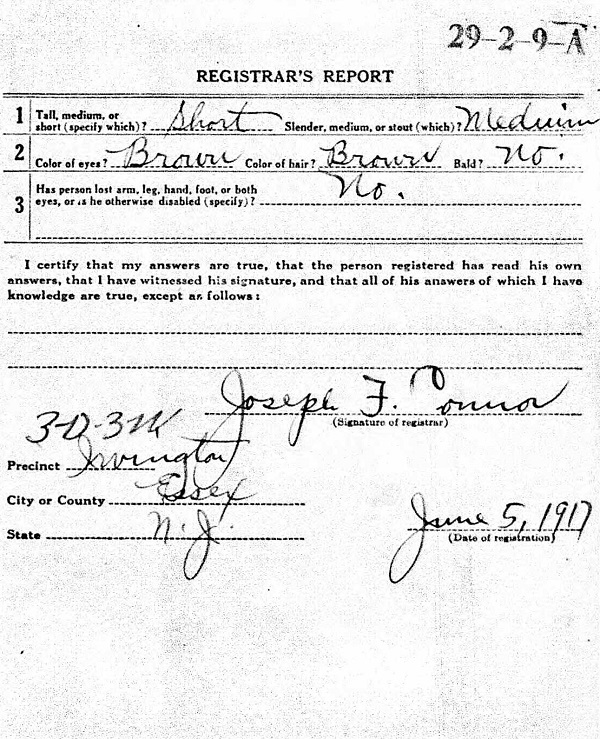 29-2-9-A
REGISTRAR'S REPORT
1 Tall, medium, or short (specify which)? Short Slender, medium, or stout (which)? Medium
2 Color of eyes? Brown Color of hair? Brown Bald? No.
3 Has person lost arm, leg, hand, foot, or both
eyes, or is he otherwise disabled (specify)? No.
I certify that my answers are true, that the person registered has read his own
answers, that I have witnessed his signature, and that all of his answers of which I have
knowledge are true, except as follows:
Joseph F. Connor
(Signature of registrar)
Precinct Irvington
City or County Essex
State N.J.
June 5, 1917
(Date of registration)